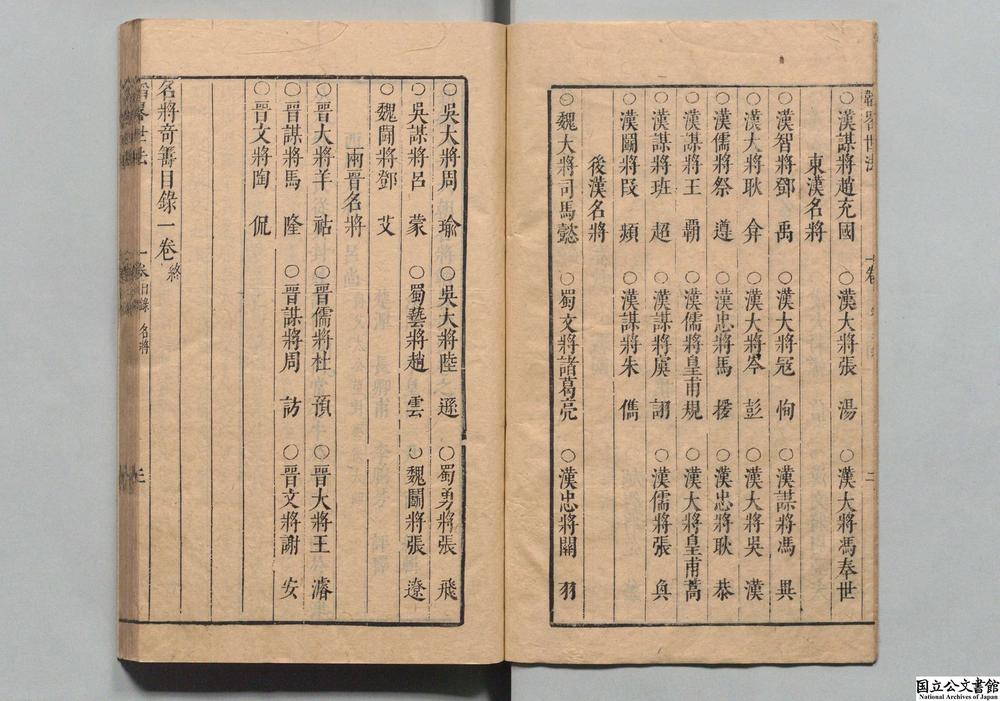 韜畧世法 一卷 二
○漢謀將趙充國 ○漢大將張湯 ○漢大將馮奉世
東漢名將
○漢智將鄧禹 ○漢大將冦恂 ○漢謀將馮異
○漢大將耿弇 ○漢大將岑彭 ○漢大將吳漢
○漢儒將祭遵 ○漢忠將馬援 ○漢忠將耿恭
○漢謀將王霸 ○漢儒將皇甫規 ○漢大將皇甫嵩
○漢謀將班超 ○漢謀將虞詡 ○漢儒將張奐
○漢鬭將段熲 ○漢謀將朱儁
後漢名將
○魏大將司馬懿 ○蜀文將諸葛亮 ○漢忠將關羽
○吳大將周瑜 ○吳大將陸遜 ○蜀勇將張飛
○吳謀將呂蒙 ○蜀藝將趙雲 ○魏鬭將張遼
○魏鬭將鄧艾
兩晉名將
○晉大將羊祜 ○晉儒將杜預 ○晉大將王濬
○晉謀將馬隆 ○晉謀將周訪 ○晉文將謝安
○晉文將陶侃
名將奇籌目錄一卷終
韜畧世法 一卷目錄 名將
国立公文書館
National Archives of Japan